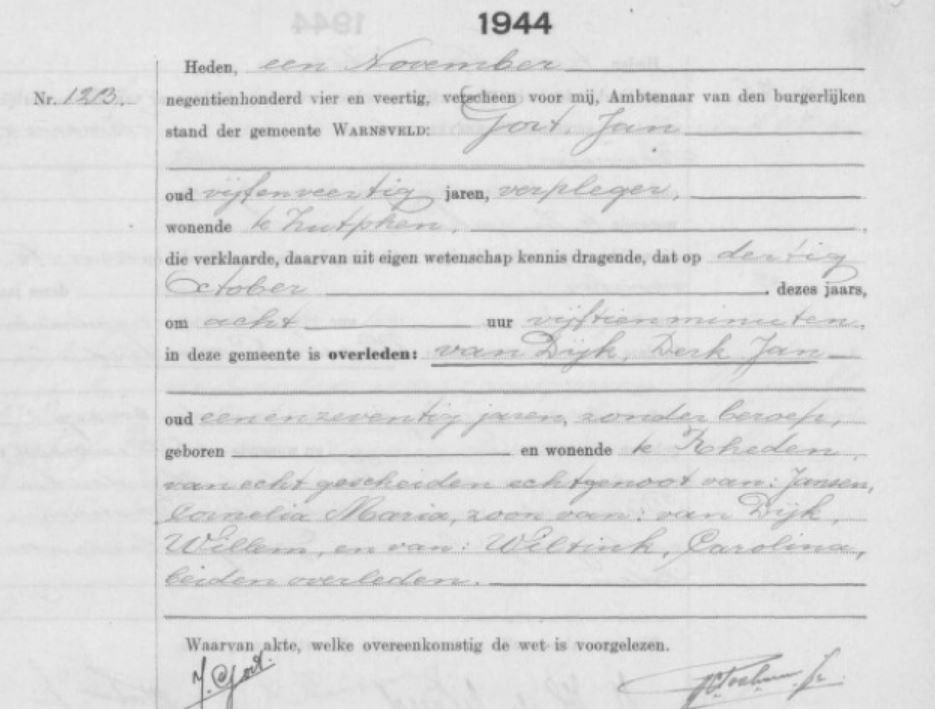 1944
Heden, een November
Nr. 123. negentienhonderd vier en veertig, verscheen voor mij, Ambtenaar van den burgerlijken
stand der gemeente WARNSVELD: Gort Jan
oud vijfenveertig jaren, verpleger,
wonende te Zutphen,
die verklaarde, daarvan uit eigen wetenschap kennis dragende, dat op dertig
October dezes jaars,
om acht uur vijftien minuten,
in deze gemeente is overleden: van Dijk, Derk Jan
oud eenenzeventig jaren, zonder beroep,
geboren en wonende te Rheden,
van echt gescheiden echtgenoot van: Jansen,
Cornelia Maria, zoon van: van Dijk,
Willem, en van: Wiltink, Carolina,
beiden overleden.
Waarvan akte, welke overeenkomstig de wet is voorgelezen.
J. Gort.